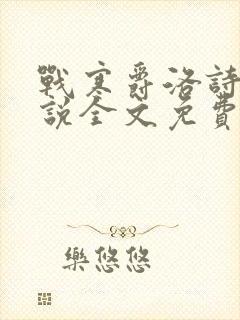 戰寒爵洛詩
說全文免費
樂悠悠